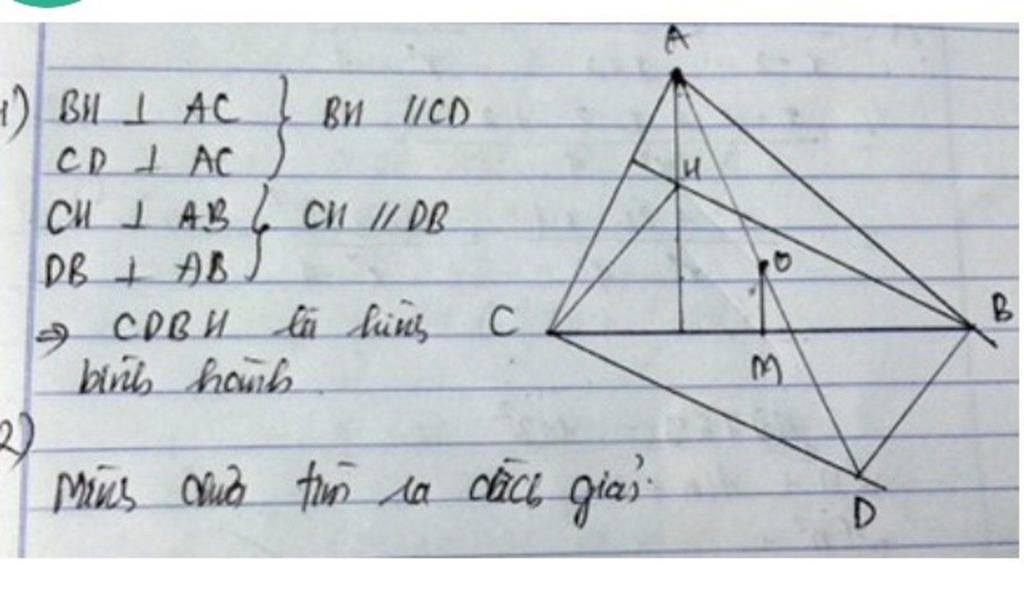 1) BH ⊥ AC } BH // CD
CD ⊥ AC
CH ⊥ AB } CH // DB
DB ⊥ AB
⇒ CDBH là hình
bình hành.
2)
Mình chưa tìm ra cách giải.
A
H
O
C
B
M
D